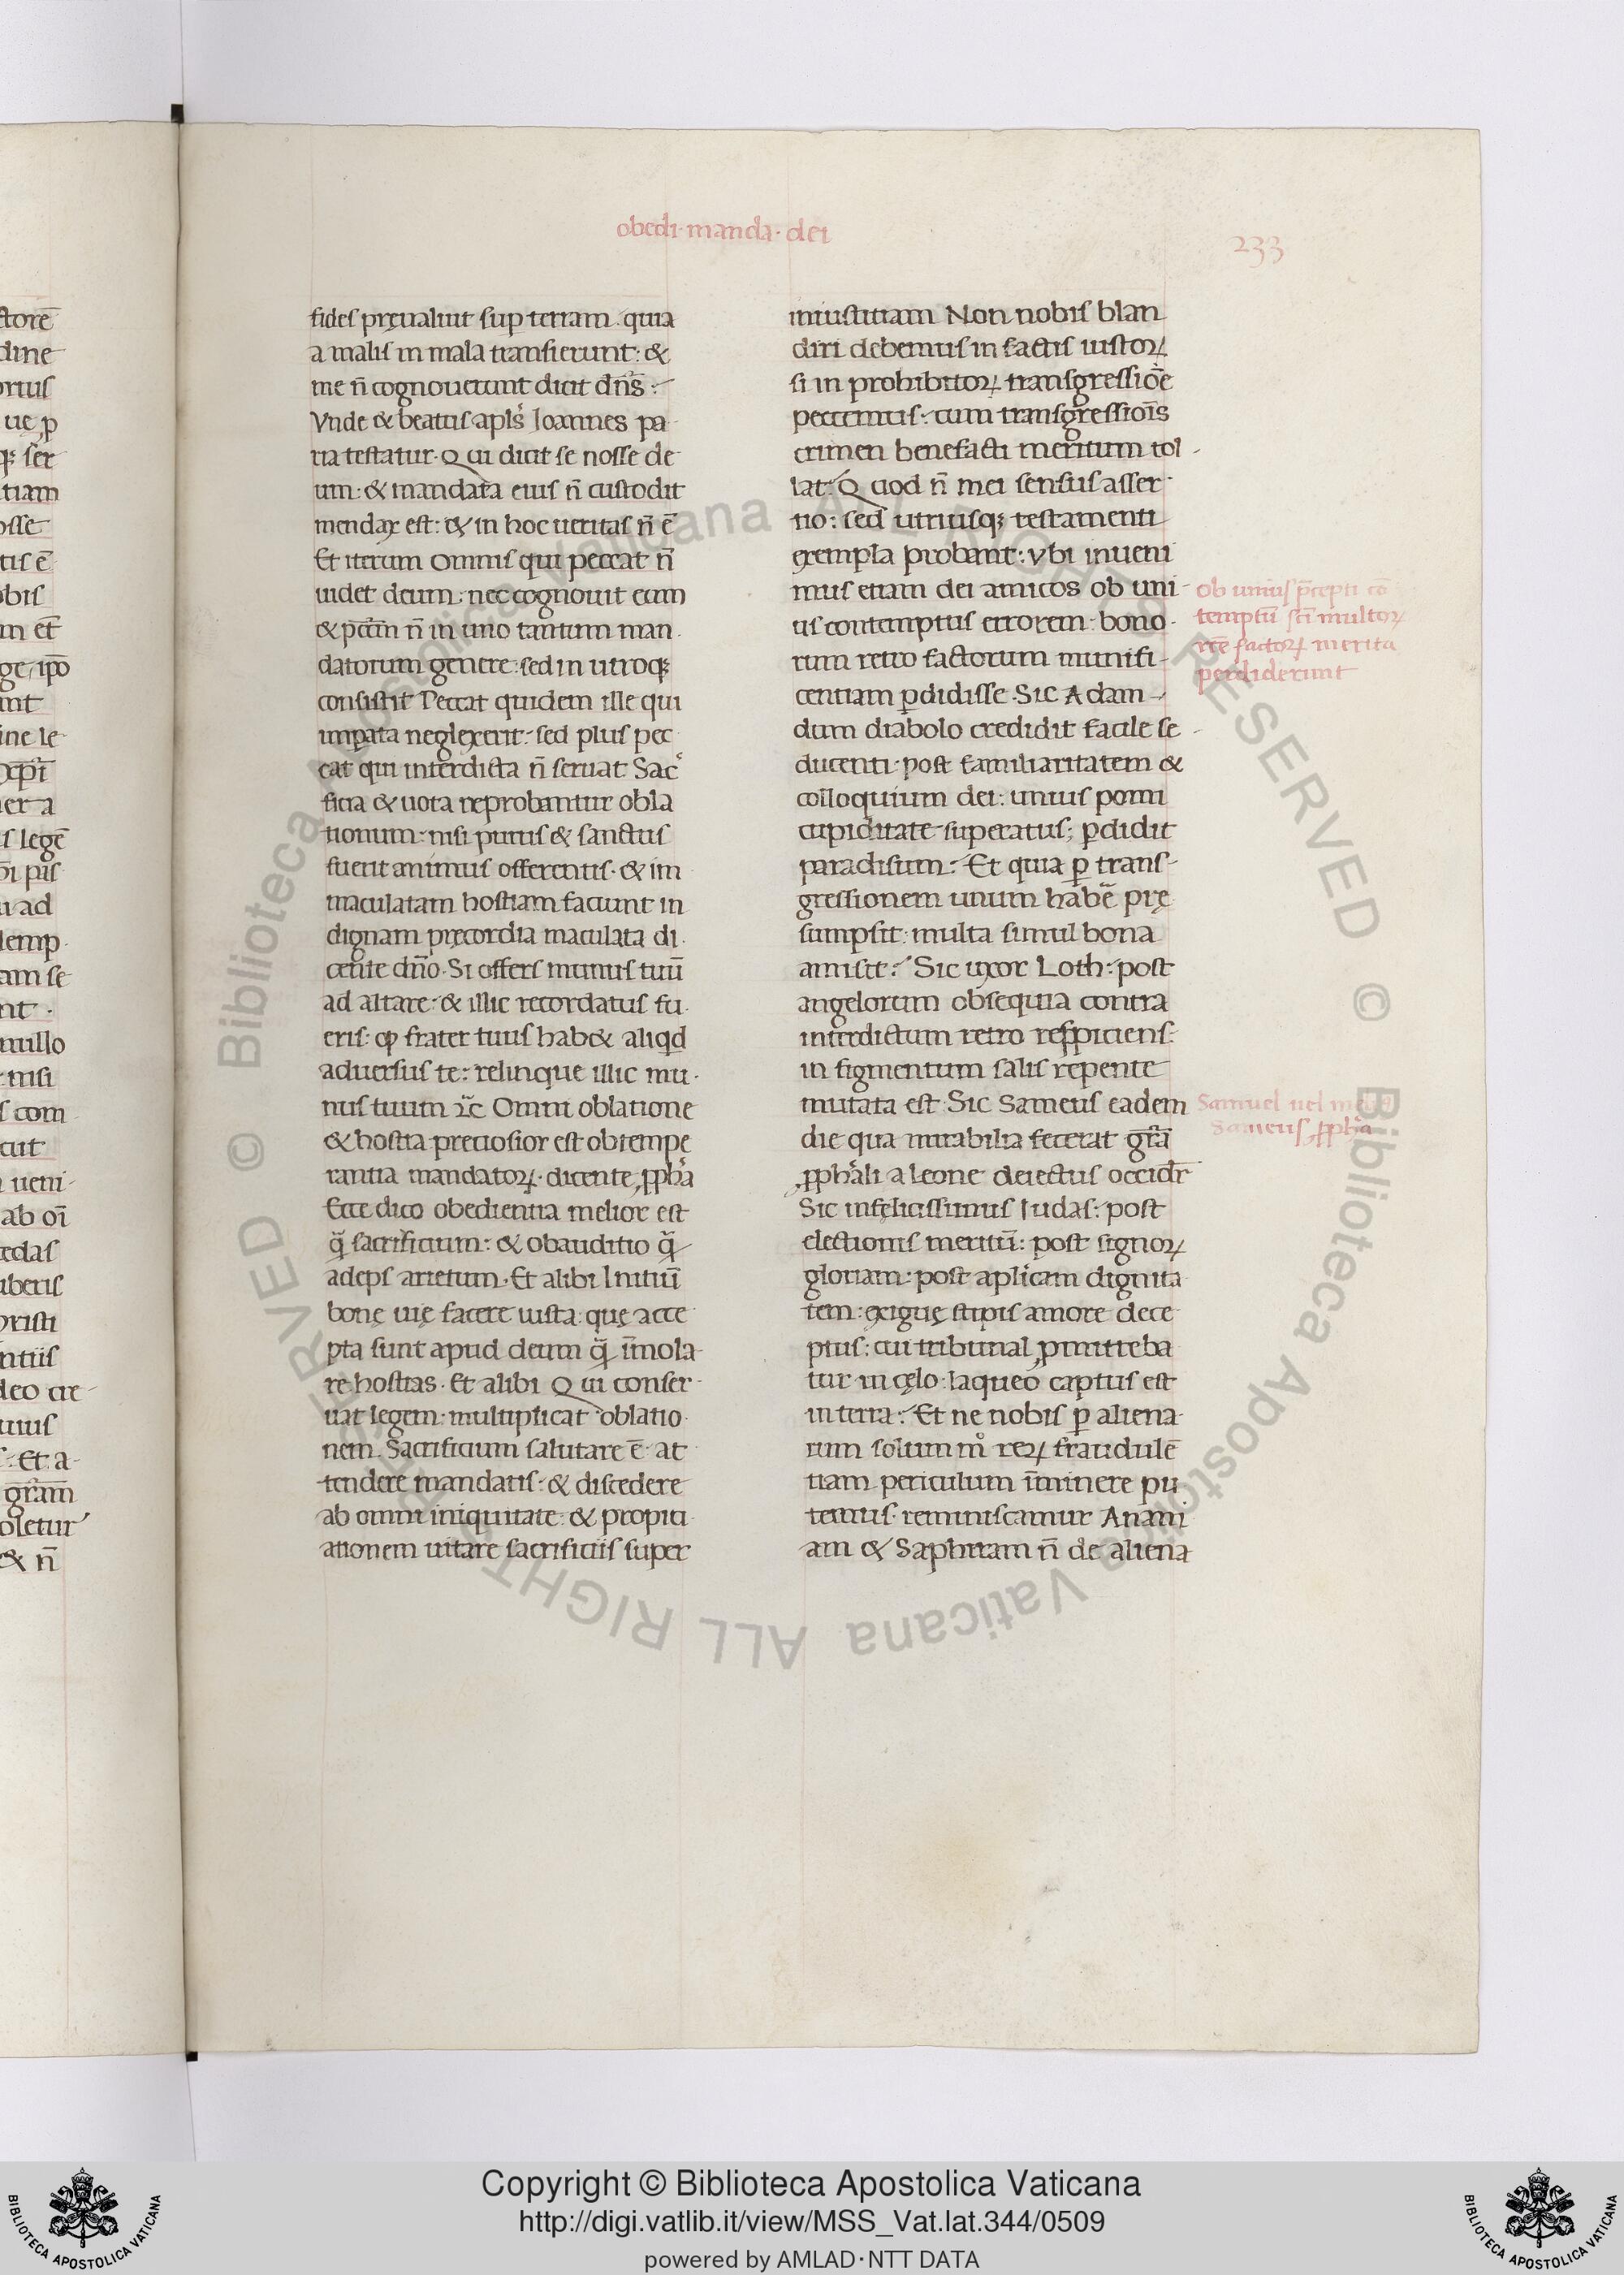 obedi·manda·dei
233
fides pręualuit sup̱ terram. quia
a malis in mala transierunt: &
me n̄ cognouerunt dicit dn̄s:
Vnde & beatus apl̓s Ioannes pa
ria testatur. Qui dicit se nosse de
um: & mandata eius n̄ custodit
mendax est: & in hoc ueritas n̄ ē
Et iterum omnis qui peccat n̄
uidet deum: nec cognouit eum
& pc̄cm̄ n̄ in uno tantum man
datorum genere: sed in utroqꝫ
consistit Peccat quidem ille qui
imꝑata neglexerit: sed plus pec
cat qui interdicta n̄ seruat Sac͛
ficia & uota reprobantur obla
tionum: nisi purus & sanctus
fuerit animus offerentis. & im
maculatam hostiam faciunt in
dignam pręcordia maculata di
cente dn̄o. Si offers munus tuū
ad altare: & illic recordatus fu
eris: ꝙ frater tuus hab& aliqd
aduersus te: relinque illic mu
nus tuum ⁊c̄ Omni oblatione
& hostia preciosior est obtempe
rantia mandatoꝝ. dicente ꝓph̓a
Ecce dico obedientia melior est
q̄̓ sacrificium: & obauditio q̄̓
adeps arietum. Et alibi Initiū
bonę uię facere iusta: quę acce
pta sunt apud deum q̄̓ īmola
re hostias. Et alibi Qui conser
uat legem: multiplicat oblatio
nem. Sacrificium salutare ē at
tendere mandatis: & discedere
ab omni iniquitate: & propiti
ationem uitare sacrificiis super
iniustitiam Non nobis blan
diri debemus in factis iustoꝝ
si in prohibitoꝝ transgressiōe
peccemus: cum transgressiōis
crimen benefacti meritum tol
lat. Quod n̄ mei sensus asser
tio: sed utriusqꝫ testamenti
exempla probant: vbi inueni
mus etiam dei amicos ob uni
us contemptus errorem: bono
rum retro factorum munifi
centiam ꝑdidisse. Sic Adam
dum diabolo credidit facile se
ducenti: post familiaritatem &
colloquium dei: unius pomi
cupiditate superatus; ꝑdidit
paradisum: Et quia ꝑ trans
gressionem unum hab̄e̓ prę
sumpsit: multa simul bona
amisit: Sic uxor Loth: post
angelorum obsequia contra
interdictum retro respiciens:
in figmentum salis repente
mutata est. Sic Sameus eadem
die qua mirabilia fecerat gr̄a
ꝓph̓ali a leone deiectus occidr̄
Sic infęlicissimus Iudas: post
electionis meritū: post signoꝝ
gloriam: post apl̓icam dignita
tem: exiguę stipis amore dece
ptus: cui tribunal ꝓmitteba
tur in cęlo: laqueo captus est
in terra: Et ne nobis ꝑ aliena
rum solum mo̊ reꝝ fraudulē
tiam periculum īminere pu
temus. reminiscamur Anani
am & Saphiram n̄ de aliena
ob unius p̄cepti cō
temptū sc̄i multoꝝ
rc̄e factoꝝ merita
perdiderunt
Samuel uel
Sameus ꝓph̓a